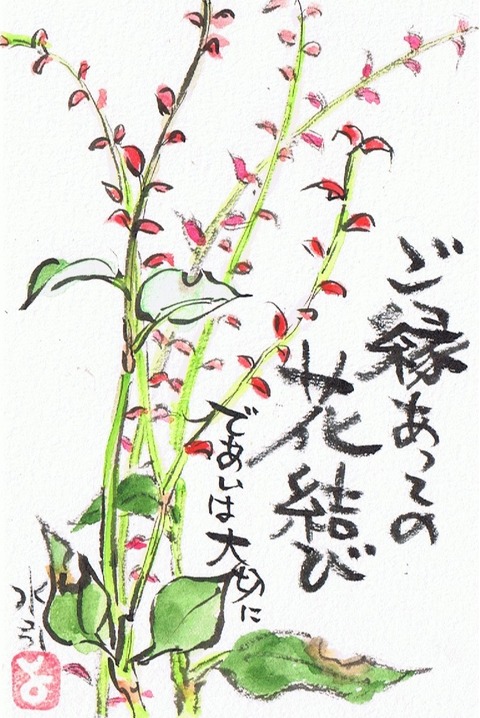 ご縁あっての
花結び
であいは大切に
水引
とよ